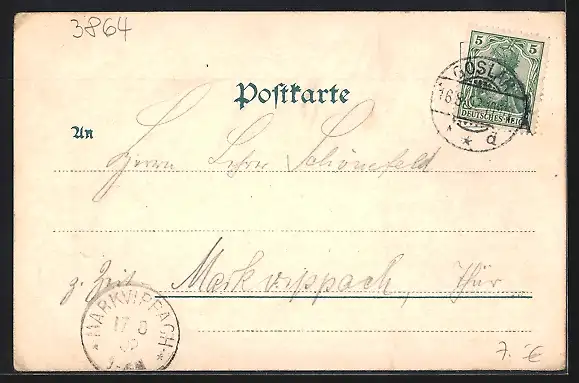 3864
5 5
GOSLAR
16.8
DEUTSCHES REICH
* * d
Postkarte
An
Herrn Lehrer Schönefeld
z. Zeit Markvippach, Thür.
MARKVIPPACH
17 8
7.- €